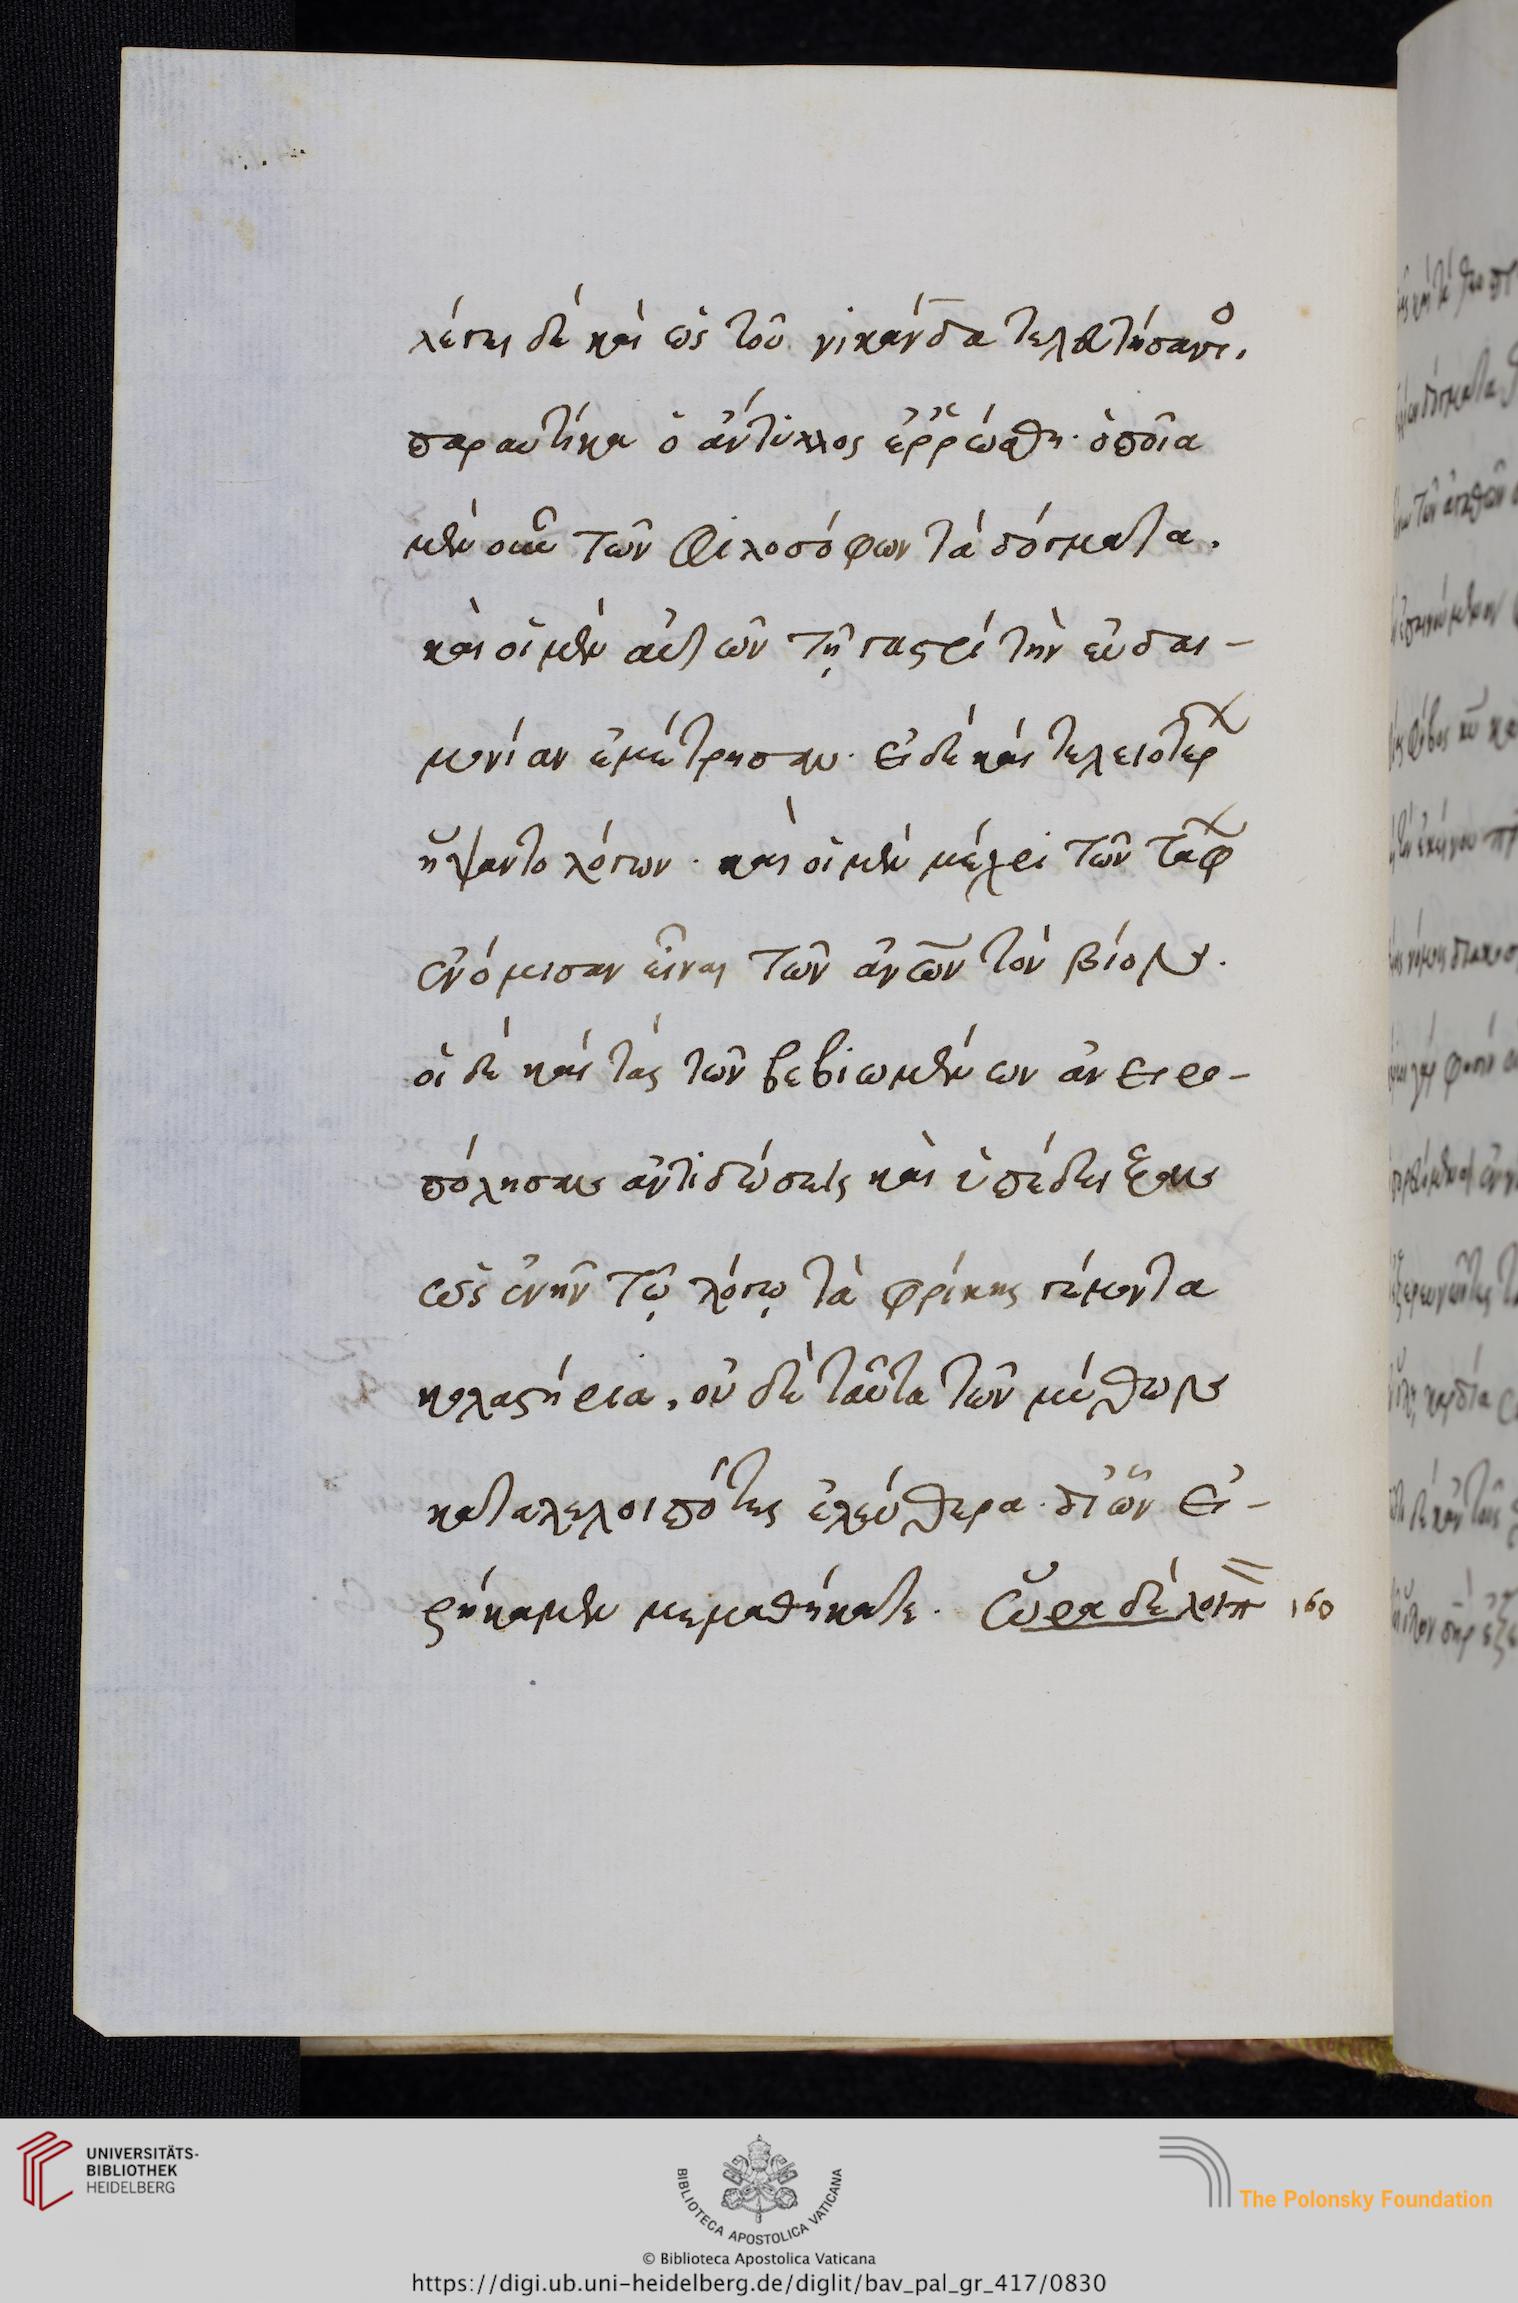 λέγει δὲ καὶ ὡς τοῦ νικάνδα τελευτήσαντο,
παραυτίκα ὁ ἀντύλλος ἐρρώσθη· ὁποῖα
μὲν οὖν τῶν φιλοσόφων τὰ δόγματα.
καὶ οἱ μὲν αὐτῶν τῇ γαστρὶ τὴν εὐδαι-
μονίαν ἐμέτρησαν· εἰ δὲ καὶ τελειοτέρων
ἥψαντο λόγων· καὶ οἱ μὲν μέχρι τῶν τάφων
ἐνόμισαν εἶναι τῶν ἀνων τὸν βίον.
οἱ δὲ καὶ τὰς τῶν βεβιωμένων ὀνειρο-
πόλησαν ἀντιδώσεις καὶ ὑπέδειξαν
ὡς ἐνῆν τῷ λόγῳ τὰ φρίκης γέμοντα
κολαστήρια, οὐδὲ ταῦτα τῶν μύθων
καταλελοιπότες ἐλεύθερα· δι' ὧν εἰ-
ρήκαμεν μεμαθήκατε. ὥρα δὲ λοιπ 160
UNIVERSITÄTS-
BIBLIOTHEK
HEIDELBERG
BIBLIOTECA APOSTOLICA VATICANA
The Polonsky Foundation
© Biblioteca Apostolica Vaticana
https://digi.ub.uni-heidelberg.de/diglit/bav_pal_gr_417/0830